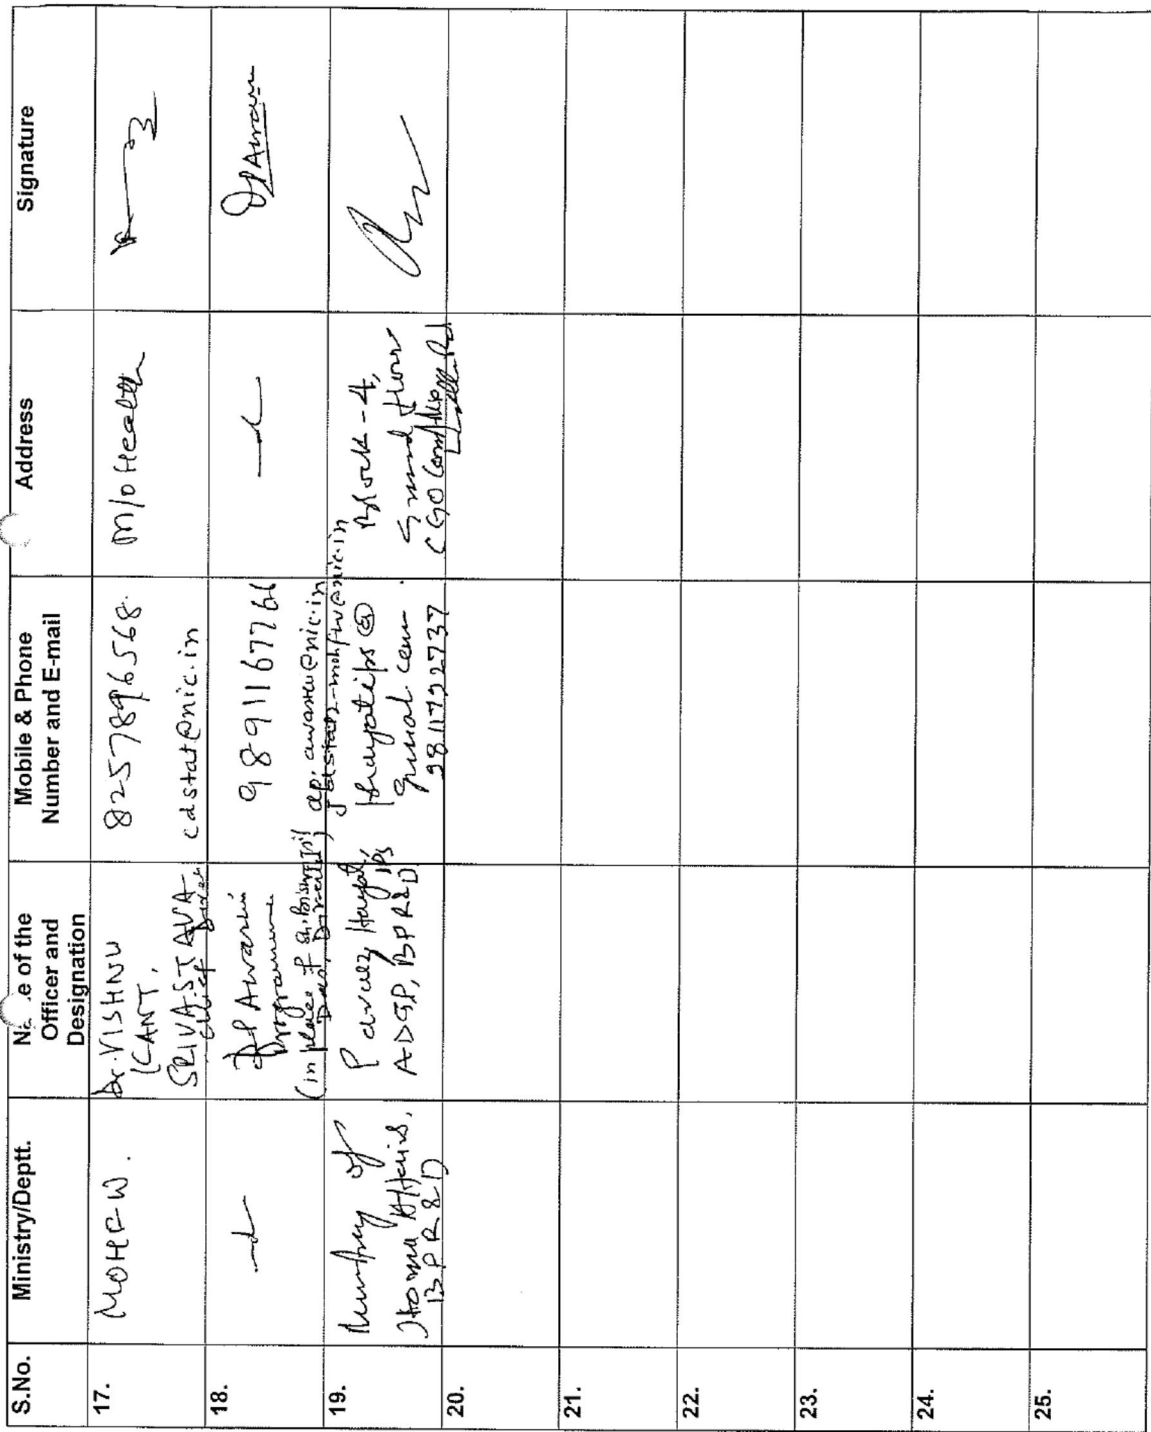 S.No.
Ministry/Deptt.
Officer and
Designation
Mobile & Phone
Number and E-mail
Address
Signature
17.
MOHFW.
Dr. VISHNU
KANT.
SRIVASTAVA
Chief
8257896568.
cdstat@nic.in
M/o Health
18.
DP Awasthi
Programme
(in place of
9891167766
dp.awasthi@nic.in
19.
Ministry of
Home Affairs,
BPR&D
Parvez Hayat, IPS
ADGP, BPR&D
hayatips@
gmail.com
9811792737
Block-4,
Ground floor
CGO Complex
20.
21.
22.
23.
24.
25.